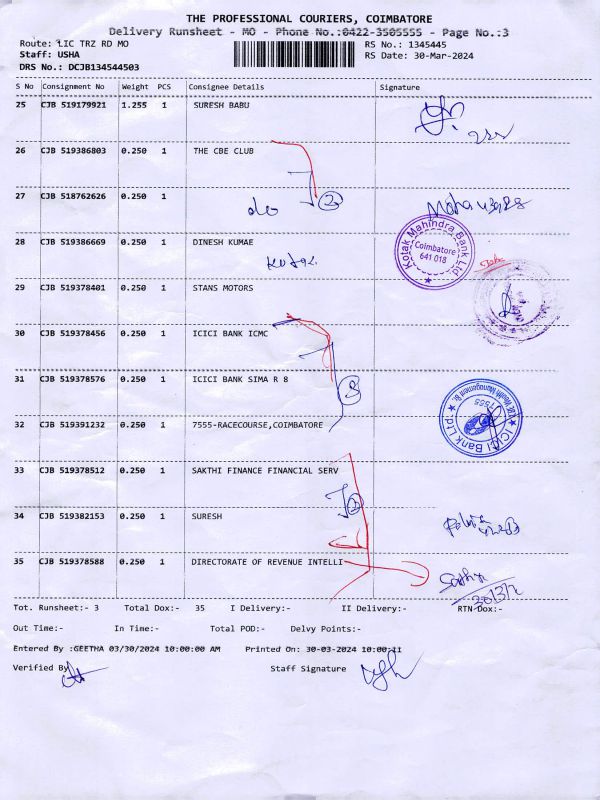 THE PROFESSIONAL COURIERS, COIMBATORE
Delivery Runsheet - MO - Phone No.:0422-3505555 - Page No.:3
Route: LIC TRZ RD MO
RS No.: 1345445
Staff: USHA
RS Date: 30-Mar-2024
DRS No.: DCJB134544503
S No Consignment No Weight PCS Consignee Details Signature
25 CJB 519179921 1.255 1 SURESH BABU
26 CJB 519386803 0.250 1 THE CBE CLUB
27 CJB 518762626 0.250 1
28 CJB 519386669 0.250 1 DINESH KUMAE
Kotak Mahindra Bank Ltd
Coimbatore
641 018
29 CJB 519378401 0.250 1 STANS MOTORS
30 CJB 519378456 0.250 1 ICICI BANK ICMC
31 CJB 519378576 0.250 1 ICICI BANK SIMA R 8
ICICI Bank Ltd
32 CJB 519391232 0.250 1 7555-RACECOURSE,COIMBATORE
33 CJB 519378512 0.250 1 SAKTHI FINANCE FINANCIAL SERV
34 CJB 519382153 0.250 1 SURESH
35 CJB 519378588 0.250 1 DIRECTORATE OF REVENUE INTELLI
Tot. Runsheet:- 3 Total Dox:- 35 I Delivery:- II Delivery:- RTN Dox:-
Out Time:- In Time:- Total POD:- Delvy Points:-
Entered By :GEETHA 03/30/2024 10:00:00 AM Printed On: 30-03-2024 10:00:11
Verified By Staff Signature